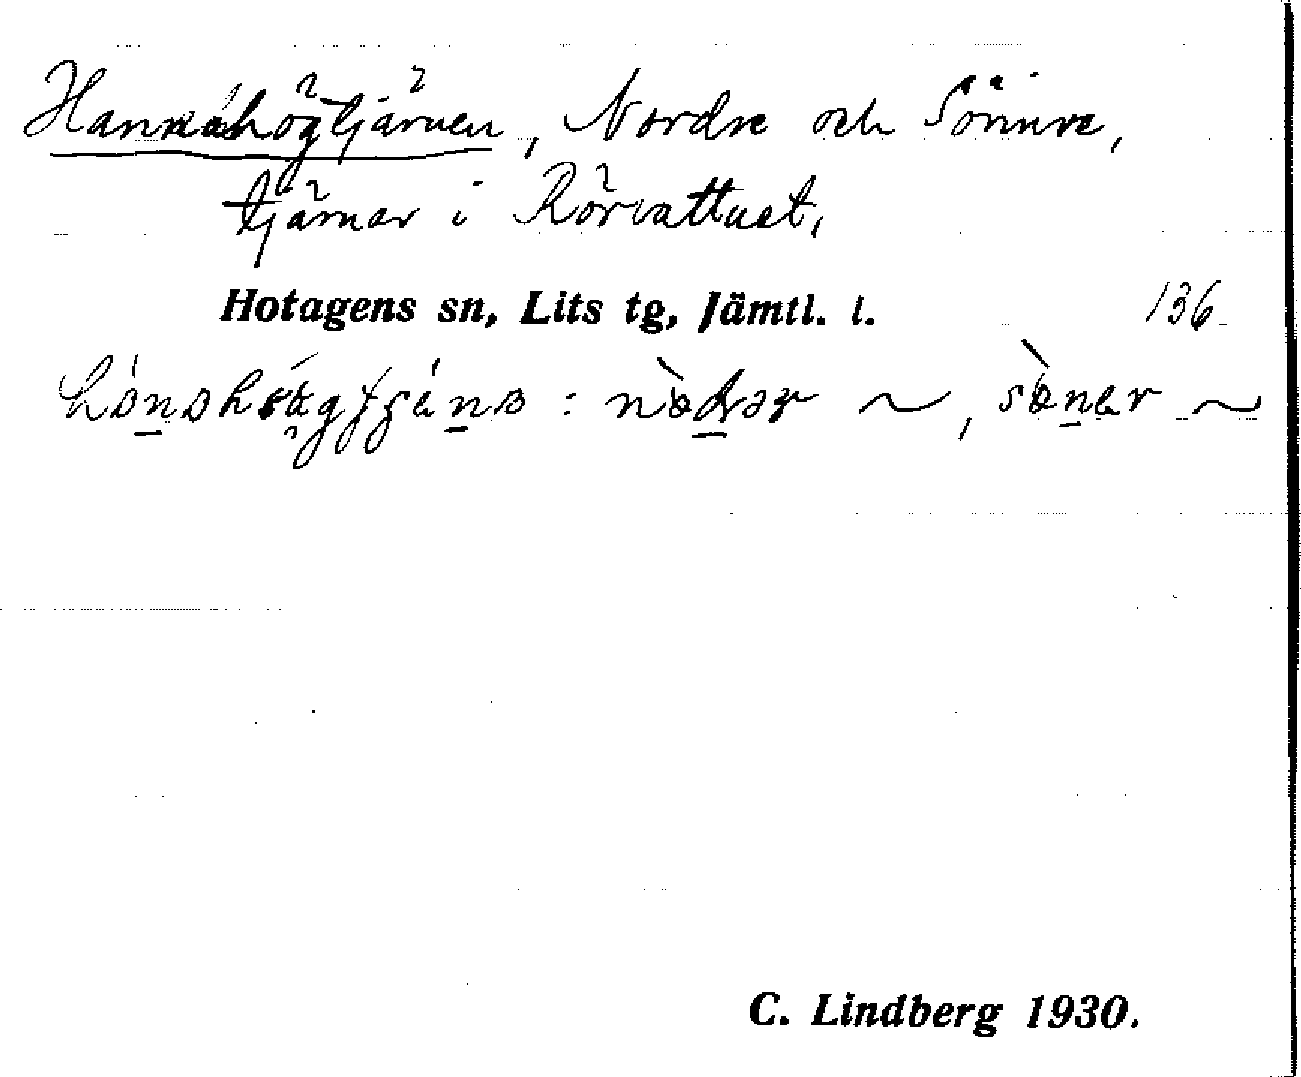 Hannåhögtjärnen, Nordre och Sönnre,
tjärnar i Rörvattnet,
Hotagens sn, Lits tg, Jämtl. l. 136
C. Lindberg 1930.